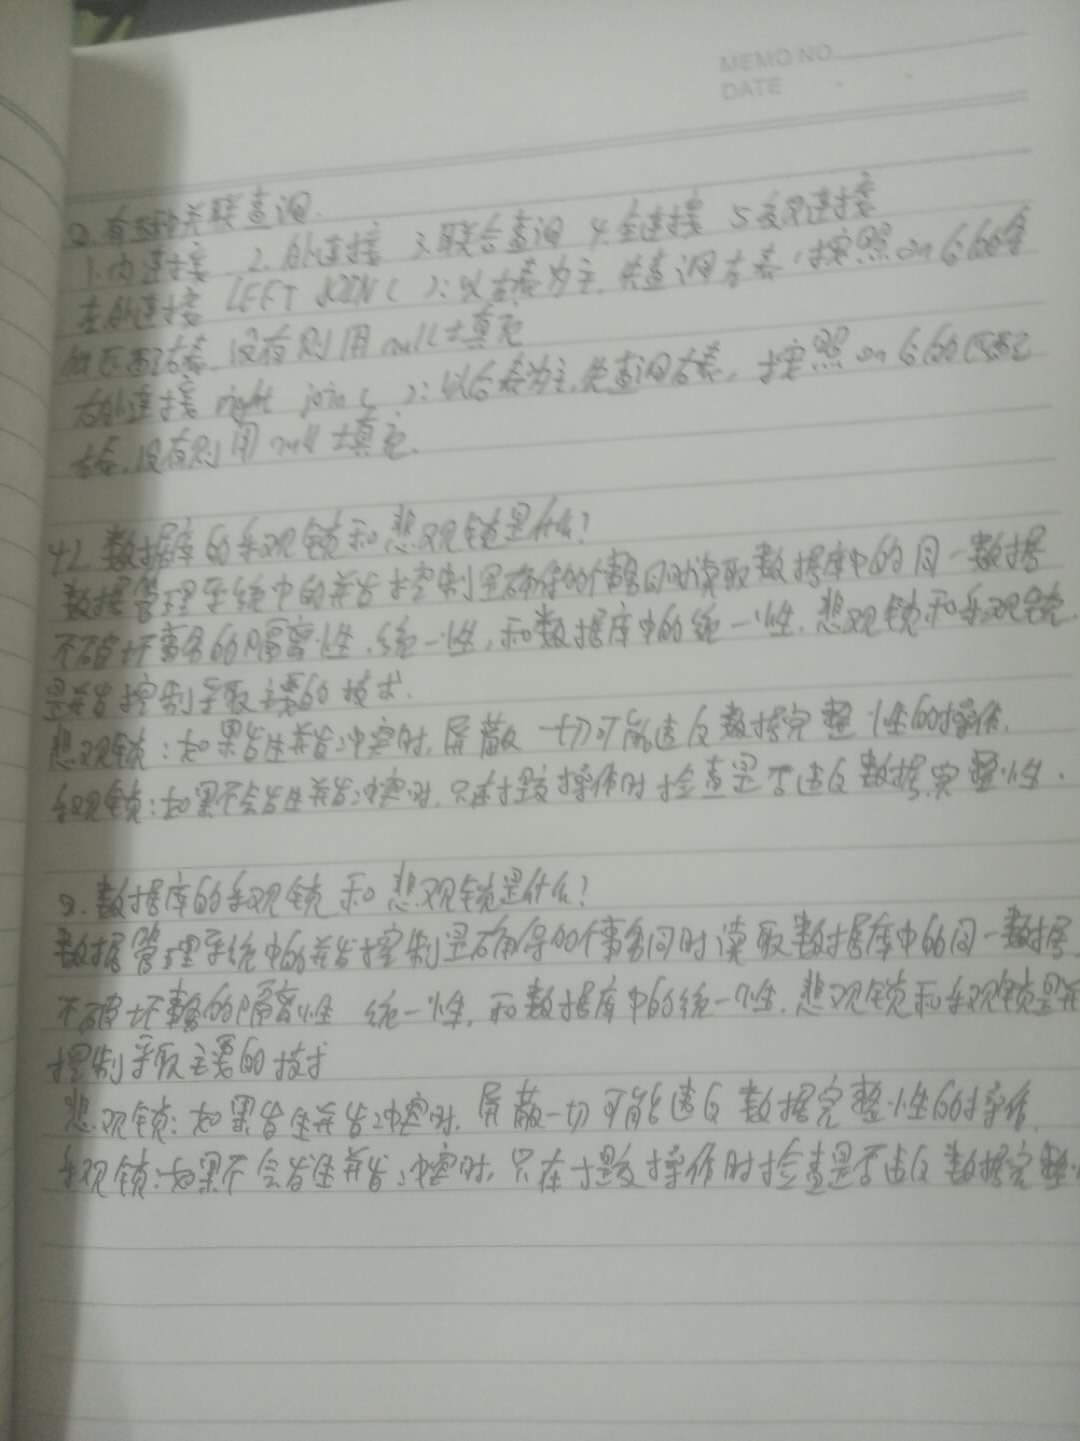 MEMO NO.
DATE
2.有5种关联查询
1.内连接 2.外连接 3.联合查询 4.全连接 5.交叉连接
左外连接 LEFT JOIN( ):以左表为主,先查询左表,按照on
匹配右表,没有则用null填充
右外连接 right join( ):以右表为主,先查询右表,按照on
左表,没有则用null填充.
42.数据库的乐观锁和悲观锁是什么?
数据管理系统中的并发控制是确保多个事务同时读取数据库中的同一数据
不破坏事务的隔离性,统一性,和数据库中的统一性.悲观锁和乐观锁
是并发控制采取主要的技术.
悲观锁:如果发生并发冲突时,屏蔽一切可能违反数据完整性的操作.
乐观锁:如果不会发生并发冲突时,只在提交操作时检查是否违反数据完整性.
2.数据库的乐观锁和悲观锁是什么?
数据管理系统中的并发控制是确保多个事务同时读取数据库中的同一数据
不破坏事务的隔离性 统一性,和数据库中的统一性.悲观锁和乐观锁是并
控制采取主要的技术
悲观锁:如果发生并发冲突时,屏蔽一切可能违反数据完整性的操作.
乐观锁:如果不会发生并发冲突时,只在提交操作时检查是否违反数据完整